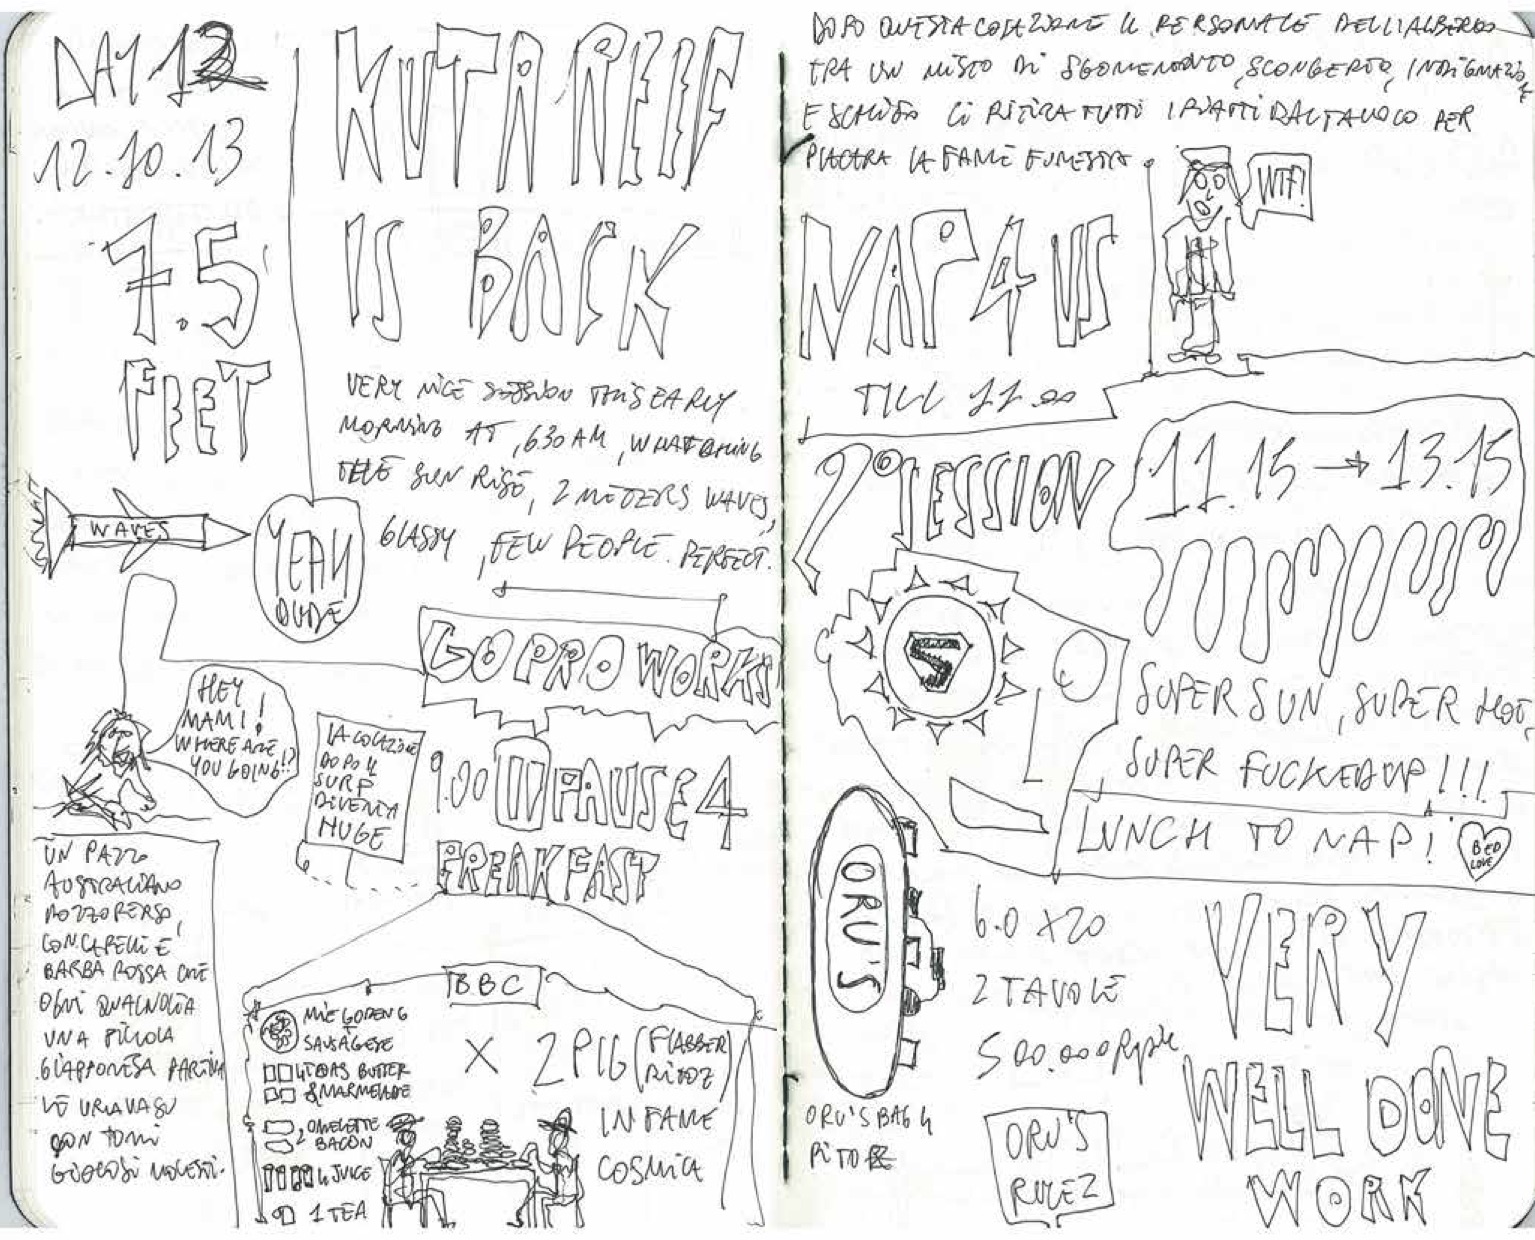 DAY 12
12.10.13
7.5
FEET
WAVES
YEAH
DUDE
KUTA REEF
IS BACK
VERY NICE SESSION THIS EARLY
MORNING AT 630 AM, WHATCHING
THE SUN RISE, 2 METERS WAVES,
GLASSY, FEW PEOPLE. PERFECT.
GO PRO WORKS
HEY
MAMI!
WHERE ARE
YOU GOING!!?
LA COLAZIONE
DOPO IL
SURF
DIVENTA
HUGE
9.00 PAUSE 4
BREAKFAST
UN PAZZO
AUSTRALIANO
ROZZO PERSO,
CON CAPELLI E
BARBA ROSSA CHE
OGNI QUALVOLTA
UNA PICCOLA
GIAPPONESA PARTIVA
LE URLAVA SU
CON TONI
GIOCOSI MOLESTI.
BBC
MIE GORENG
+
SAUSAGESE
4 TOAS BUTTER
& MARMELADE
2 OMELETTE
BACON
4 JUICE
1 TEA
X 2 PIG (FLABBER
RIDOZ
IN FAME
COSMICA
DOPO QUESTA COLAZIONE IL PERSONALE DELL'ALBERGO
TRA UN MISTO DI SGOMENTO, SCONCERTO, INDIGNAZIONE
E SCHIFO CI RITIRA TUTTI I PIATTI DAL TAVOLO PER
PLACARA LA FAME FUNESTA
WTF!
NAP 4 US
TILL 11.00
2° SESSION
11.15 → 13.15
S
SUPER SUN, SUPER HOT,
SUPER FUCKED UP!!!
LUNCH TO NAP!
BED
LOVE
ORU'S
6.0 X 20
2 TAVOLE
500.000 Rupie
ORU'S BAG 4
ORU'S
RULEZ
VERY
WELL DONE
WORK